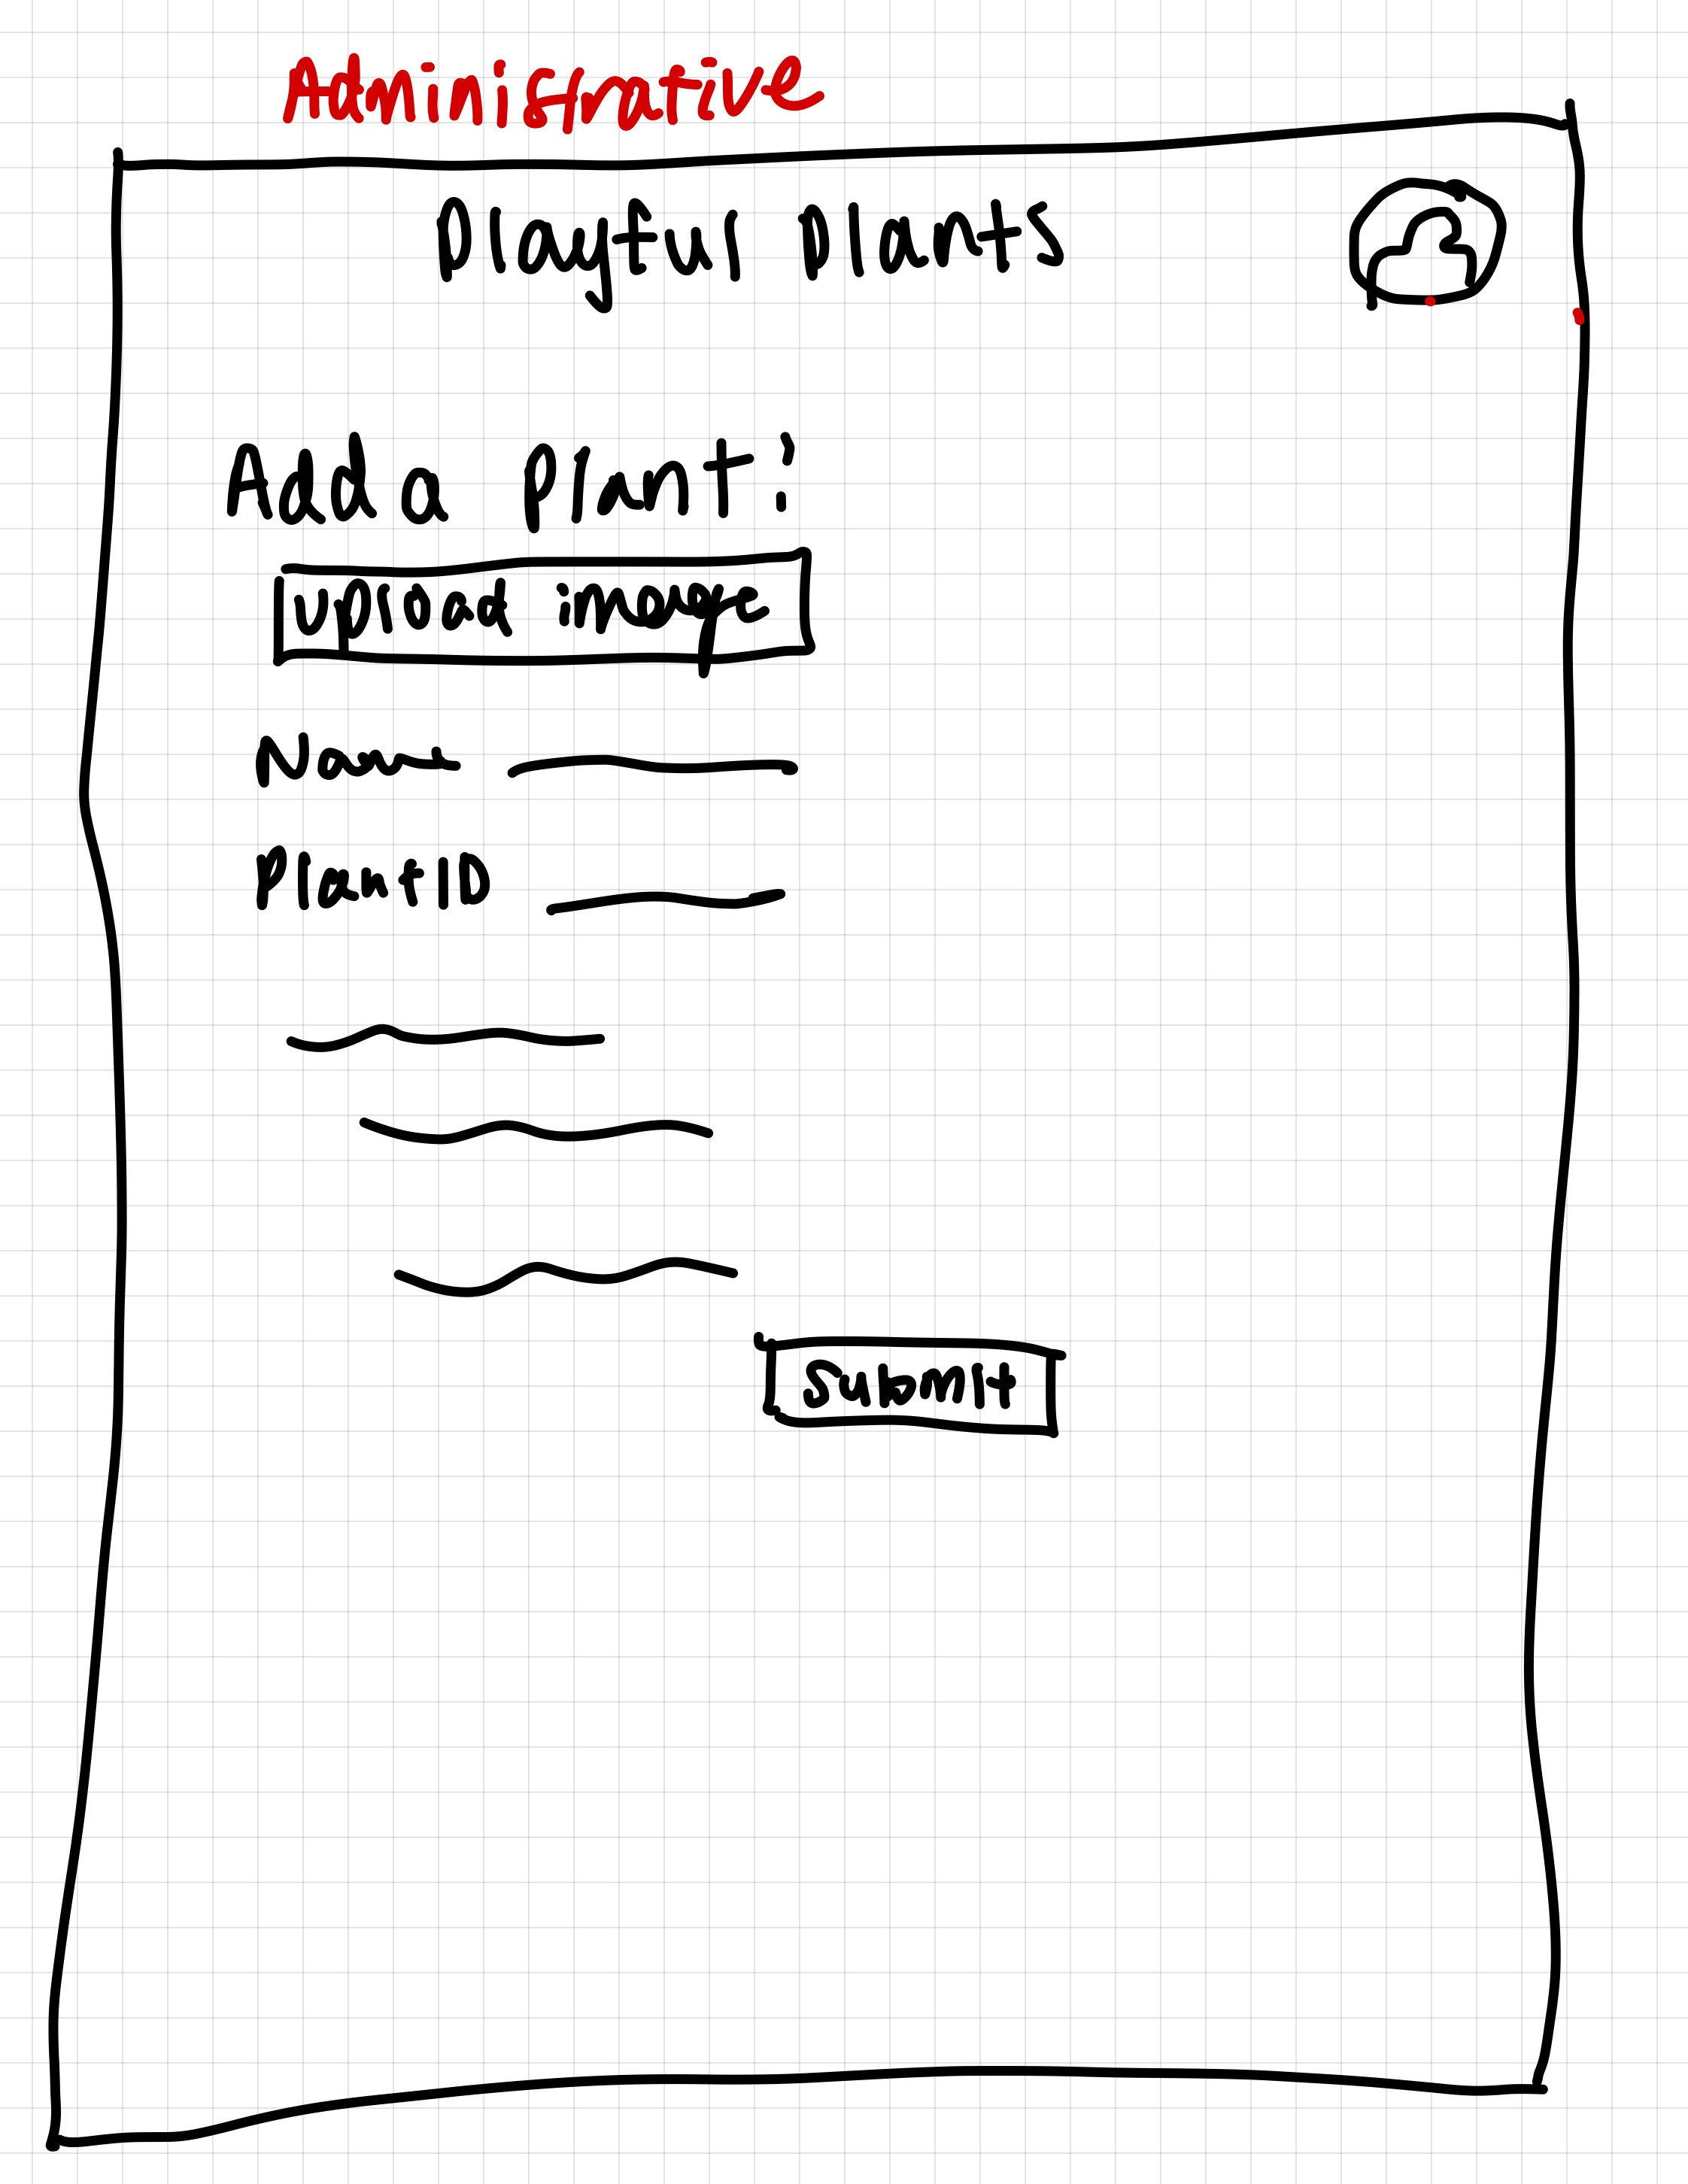 Adminisrative
Playful Plants
Add a Plant:
upload image
Name
PlantID
submit